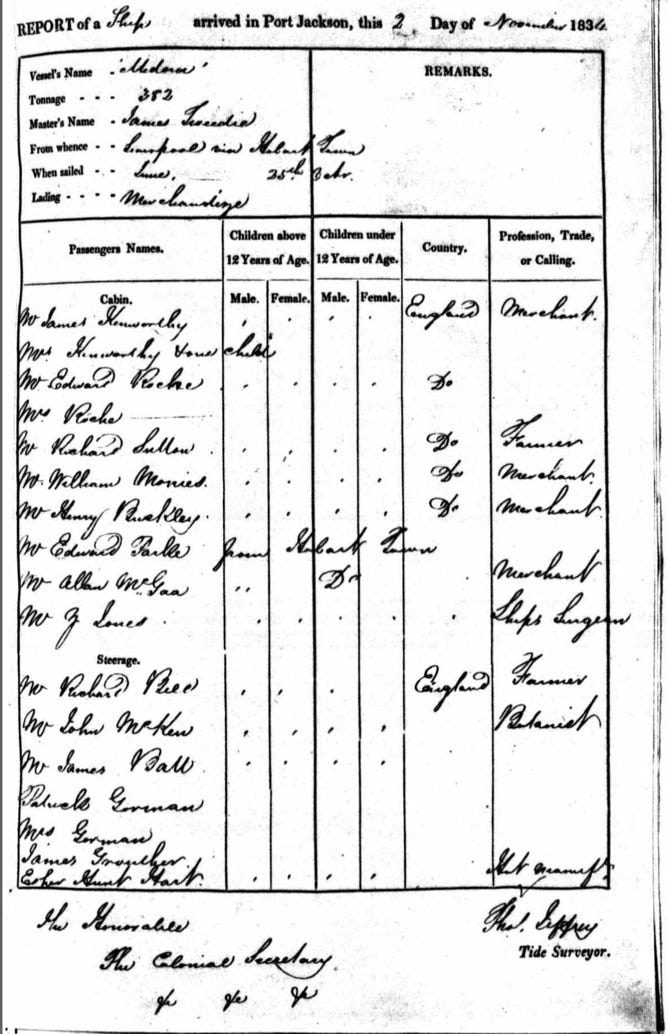 REPORT of a Ship arrived in Port Jackson, this 2 Day of November 1836
Vessel's Name - "Medora"
REMARKS.
Tonnage - - - 382
Master's Name - James Tweedie
From whence - - Liverpool via Hobart Town
When sailed - - June, 25th Octr.
Lading - - - - Merchandize
Passengers Names.
Children above 12 Years of Age.
Children under 12 Years of Age.
Country.
Profession, Trade, or Calling.
Cabin. Male. Female. Male. Female.
Mr James Kenworthy England Merchant.
Mrs Kenworthy & one child
Mr Edward Roche Do
Mrs Roche
Mr Richard Sutton Do Farmer
Mr William Monies. Do Merchant.
Mr Henry Buckley. Do Merchant.
Mr Edward from Hobart Town
Mr Allan McGaa Do Merchant
Mr Jones Ships Surgeon
Steerage.
Mr Richard England Farmer
Mr John McKew Botanist
Mr James Ball
Patrick Gorman
Mrs Gorman
James
Hunt Hart. Hat manufr
The Honorable
Thos. Jeffrey
The Colonial Secretary
Tide Surveyor.
&c &c &c